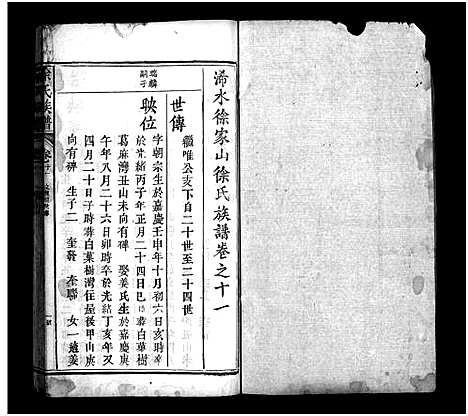 浠水徐家山徐氏族譜卷之十一
世傳
繼唯公亥下自二十世至二十四世
瑞麟
嗣子
映位
字朝宗生於嘉慶壬申年十月初六日亥時
於光緒丙子年正月二十四日巳時葬白葉樹
葛麻灣丑山未向有碑 娶姜氏生於嘉慶庚
午年八月二十六日卯時卒於光緒丁亥年又
四月二十日子時葬白葉樹灣住屋後甲山庚
向有碑 生子二 奎 奎聯 女一適姜
徐氏族譜